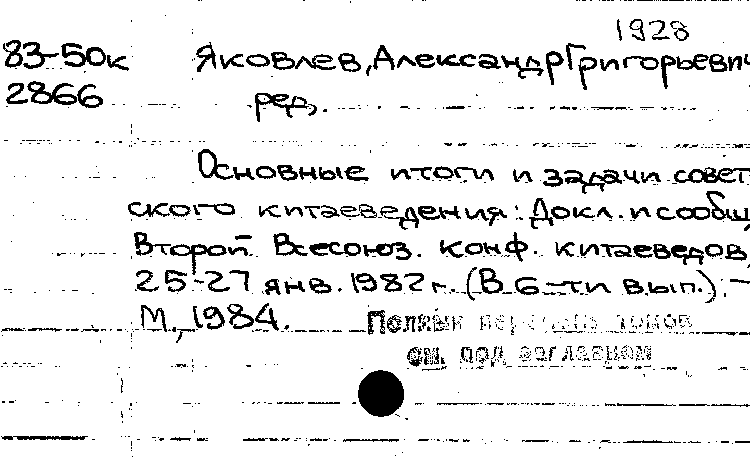 1928
83-50к Яковлев, Александр Григорьевич
2866 ред.
Основные итоги и задачи совет
ского китаеведения: Докл. и сообщ.
Второй Всесоюз. конф. китаеведов,
25-27 янв. 1982 г. (В 6-ти вып.). —
М., 1984.
Полный перечень томов
см. под заглавием